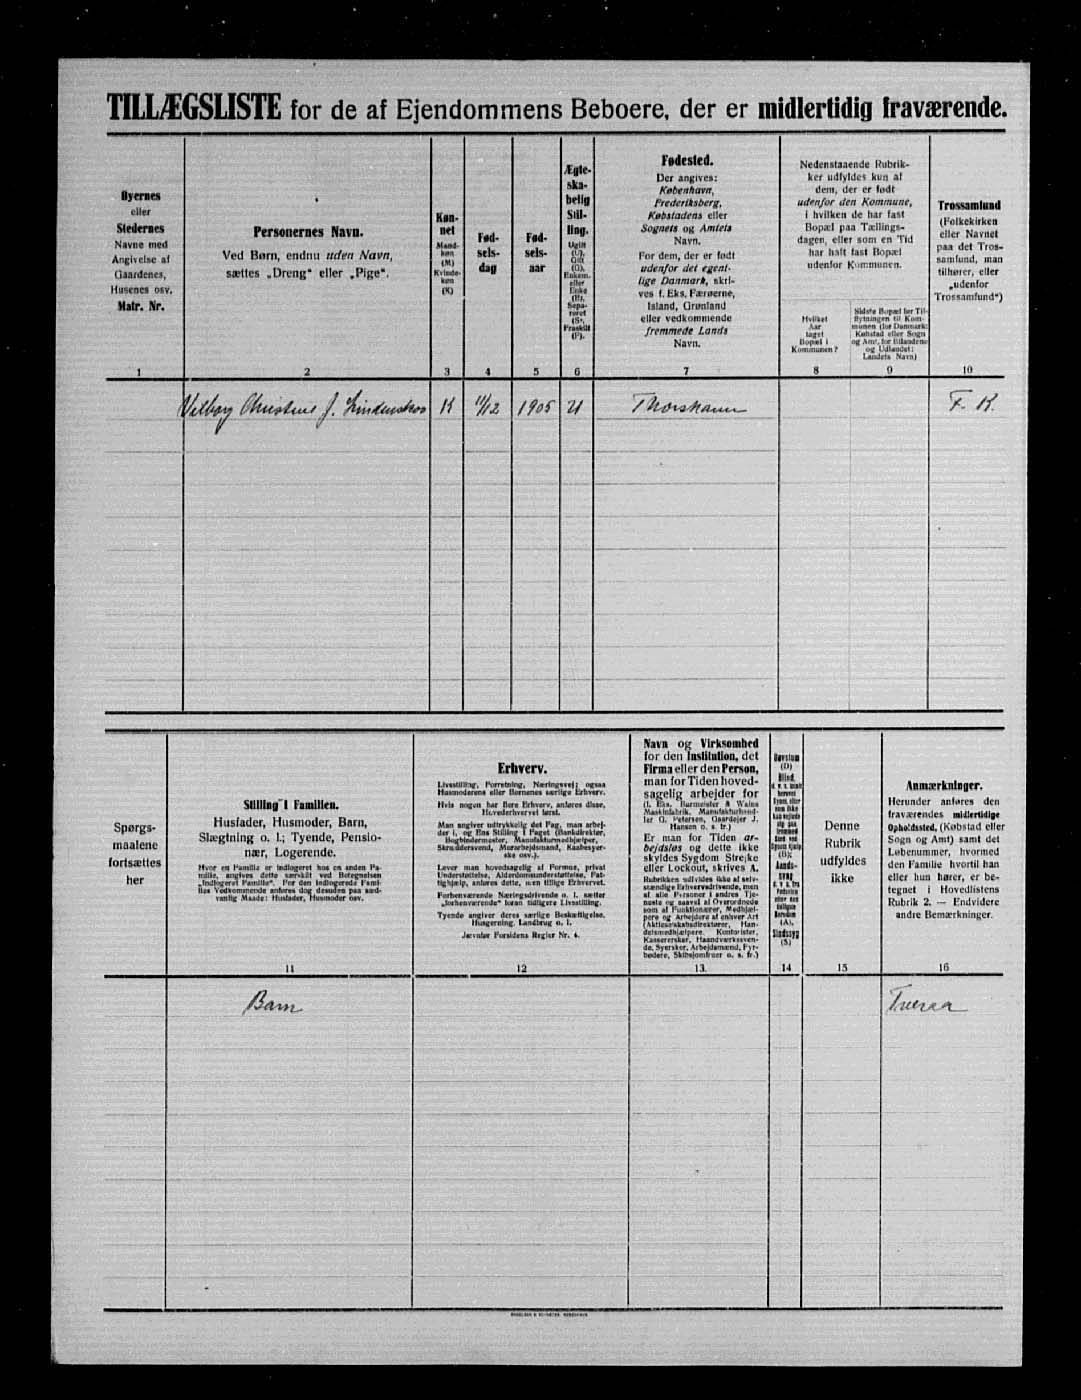 TILLÆGSLISTE for de af Ejendommens Beboere, der er midlertidig fraværende.
Byernes
eller
Stedernes
Navne med
Angivelse af
Gaardenes,
Husenes osv.
Matr. Nr.
Personernes Navn.
Ved Børn, endnu uden Navn,
sættes „Dreng“ eller „Pige“.
Køn-
net
Mand-
køn
(M)
Kvinde-
køn
(K)
Fød-
sels-
dag
Fød-
sels-
aar
Ægte-
ska-
belig
Stil-
ling.
Ugift
(U),
Gift
(G),
Enkem.
eller
Enke
(E),
Sepa-
reret
(S),
Fraskilt
(F).
Fødested.
Der angives:
København,
Frederiksberg,
Købstadens eller
Sognets og Amtets
Navn.
For dem, der er født
udenfor det egent-
lige Danmark, skri-
ves f. Eks. Færøerne,
Island, Grønland
eller vedkommende
fremmede Lands
Navn.
Nedenstaaende Rubrik-
ker udfyldes kun af
dem, der er født
udenfor den Kommune,
i hvilken de har fast
Bopæl paa Tællings-
dagen, eller som en Tid
har haft fast Bopæl
udenfor Kommunen.
Hvilket
Aar
taget
Bopæl i
Kommunen?
Sidste Bopæl før Til-
flytningen til Kom-
munen (for Danmark:
Købstad eller Sogn
og Amt, for Bilandene
og Udlandet:
Landets Navn)
Trossamfund
(Folkekirken
eller Navnet
paa det Tros-
samfund, man
tilhører, eller
„udenfor
Trossamfund“)
1 2 3 4 5 6 7 8 9 10
Christine J. Lindenskov K 11/12 1905 U Thorshavn F. K.
Spørgs-
maalene
fortsættes
her
Stilling i Familien.
Husfader, Husmoder, Barn,
Slægtning o. l.; Tyende, Pensio-
nær, Logerende.
Hvor en Familie er indlogeret hos en anden Fa-
milie, angives dette særskilt ved Betegnelsen
„Indlogeret Familie“. For den indlogerede Fami-
lies Vedkommende anføres dog desuden paa sæd-
vanlig Maade: Husfader, Husmoder osv.
Erhverv.
Livsstilling, Forretning, Næringsvej; ogsaa
Husmoderens eller Børnenes særlige Erhverv.
Hvis nogen har flere Erhverv, anføres disse,
Hovederhvervet først.
Man angiver udtrykkelig det Fag, man arbej-
der i, og Ens Stilling i Faget (Bankdirektør,
Bogbindermester, Manufakturmedhjælper,
Skræddersvend, Murarbejdsmand, Kaabesyer-
ske osv.).
Lever man hovedsagelig af Formue, privat
Understøttelse, Alderdomsunderstøttelse, Fat-
tighjælp, anføres dette, men tillige Erhvervet.
Forhenværende Næringsdrivende o. l. sætter
„forhenværende“ foran tidligere Livsstilling.
Tyende angiver deres særlige Beskæftigelse,
Husgerning, Landbrug o. l.
Jævnfør Forsidens Regler Nr. 4.
Navn og Virksomhed
for den Institution, det
Firma eller den Person,
man for Tiden hoved-
sagelig arbejder for
(f. Eks. Burmeister & Wains
Maskinfabrik, Manufakturhand-
ler G. Petersen, Gaardejer J.
Hansen o. s. fr.)
Er man for Tiden ar-
bejdsløs og dette ikke
skyldes Sygdom Strejke
eller Lockout, skrives A.
Rubrikken udfyldes ikke af selv-
stændige Erhvervsdrivende, men
af alle Personer i andres Tje-
neste og saavel af Overordnede
som af Funktionærer, Medhjæl-
pere og Arbejdere af enhver Art
(Aktieselskabsdirektører, Han-
delsmedhjælpere, Kontorister,
Kasserersker, Haandværkssven-
de, Syersker, Arbejdsmænd, Fyr-
bødere, Skibsjomfruer o. s. fr.)
Døvstum
(D)
Blind,
Aands-
svag
(A),
Sindssyg
(S)
Denne
Rubrik
udfyldes
ikke
Anmærkninger.
Herunder anføres den
fraværendes midlertidige
Opholdssted, (Købstad eller
Sogn og Amt) samt det
Løbenummer, hvormed
den Familie hvortil han
eller hun hører, er be-
tegnet i Hovedlistens
Rubrik 2. — Endvidere
andre Bemærkninger.
11 12 13. 14 15 16
Barn Tveraa